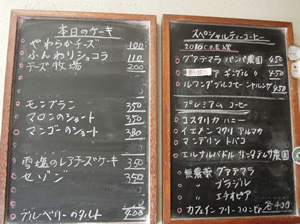 本日のケーキ
やわらかチーズ 100
ふんわりショコラ 110
チーズ牧場 200
モンブラン 350
マロンのショート 350
マンゴのショート 380
雪塩のレアチーズケーキ 350
セゾン 350
ブルーベリーのタルト 400
スペシャルティーコーヒー
グァテマラ パンパ農園 450
プレミアム コーヒー
コスタリカ ハニー
イエメン マタリ アルマカ
マンデリン トバコ
エルサルバドル サンタテレサ農園
無農薬 グァテマラ
〃 ブラジル
〃 エチオピア
カフェインフリーコロンビア 各400